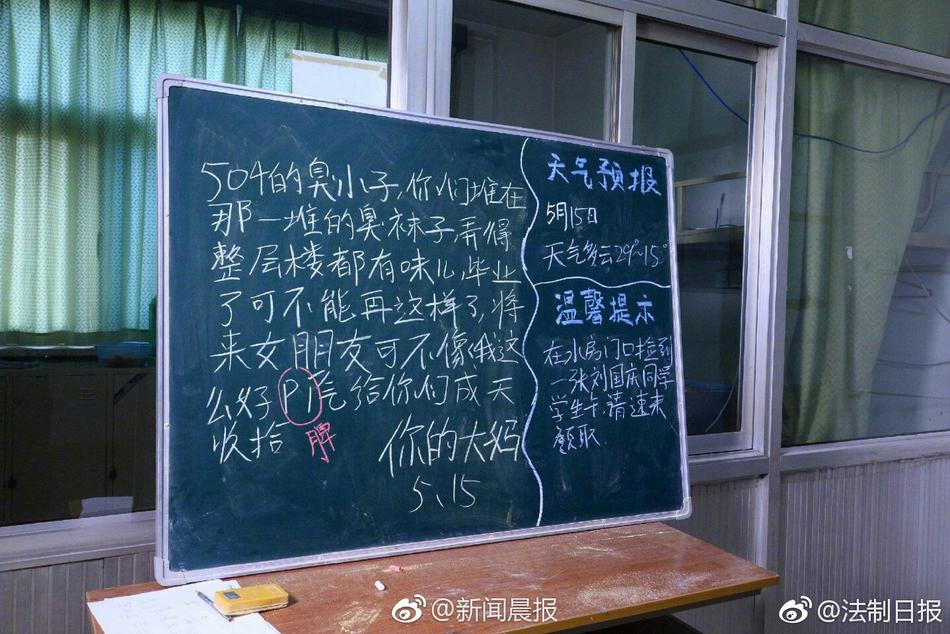 504的臭小子,你们堆在
那一堆的臭袜子弄得
整层楼都有味儿,毕业
了可不能再这样了,将
来女朋友可不像我这
么好Pi气给你们成天
收拾
脾
你的大妈
5、15
天气预报
5月15日
天气多云29°~15°
温馨提示
在水房门口捡到
一张刘国庆同学
学生卡,请速来
领取.
@新闻晨报
@法制日报